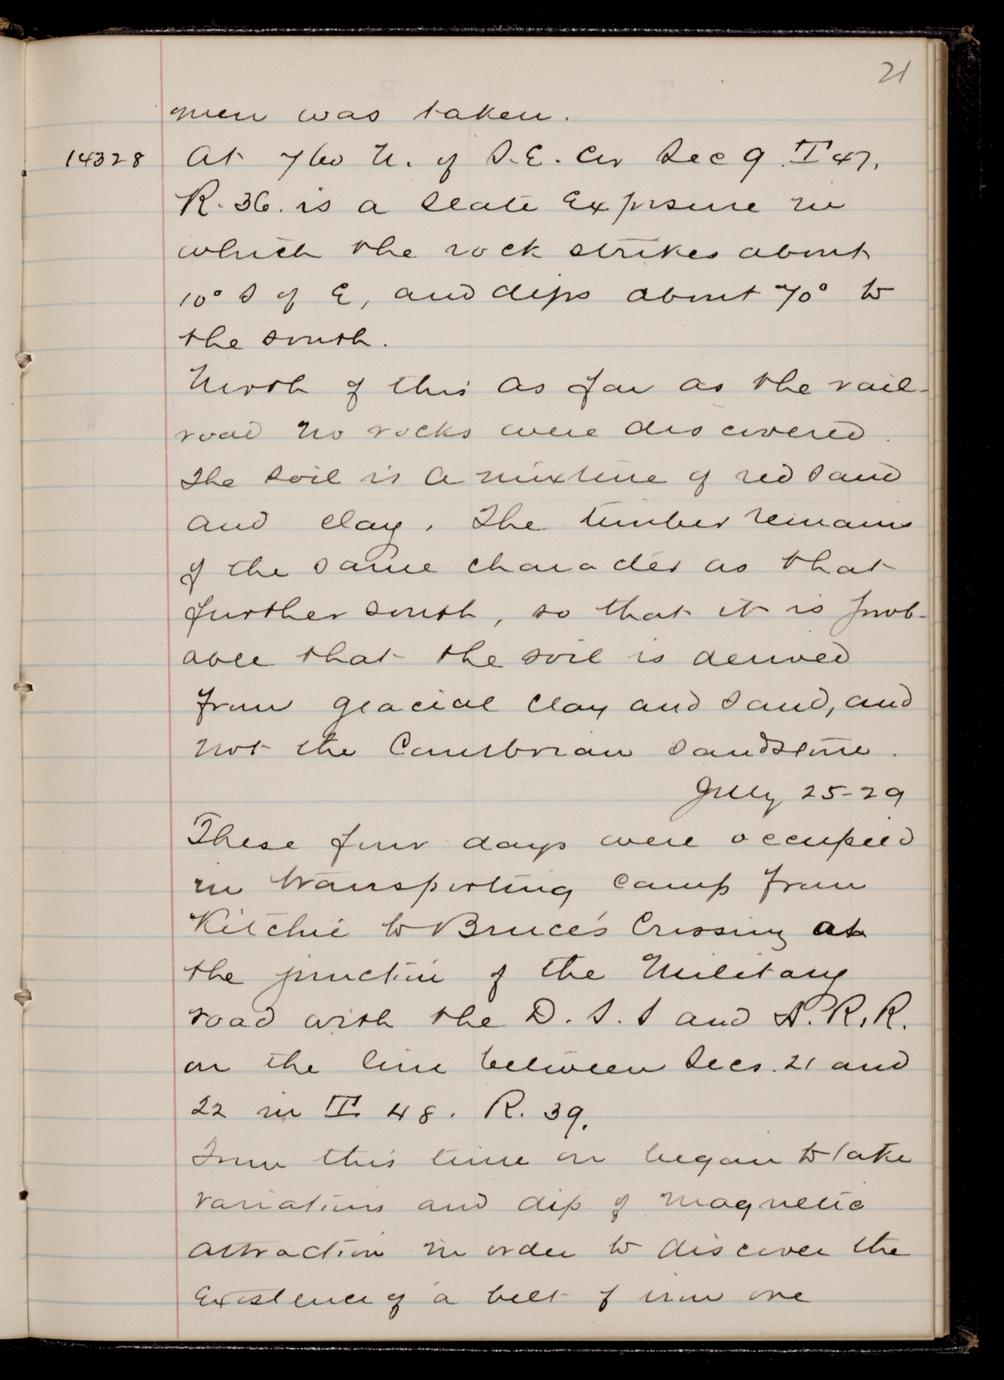 21
men was taken.
14328 At 760 N. of S.E. Cor Sec 9 T 47,
R. 36. is a slate Exposure in
which the rock strikes about
10° S of E, and dips about 70° to
the south.
North of this as far as the rail-
road no rocks were discovered.
The soil is a mixture of red sand
and clay. The timber remains
of the same character as that
further south, so that it is prob-
able that the soil is derived
from glacial clay and sand, and
not the Cambrian sandstone.
July 25-29
These four days were occupied
in transporting camp from
Kitchie to Bruce's Crossing at
the junction of the Military
road with the D. S. S and A. R. R.
on the line between Secs. 21 and
22 in T 48. R. 39.
From this time on began to take
variations and dip of magnetic
attraction in order to discover the
Existence of a belt of iron ore